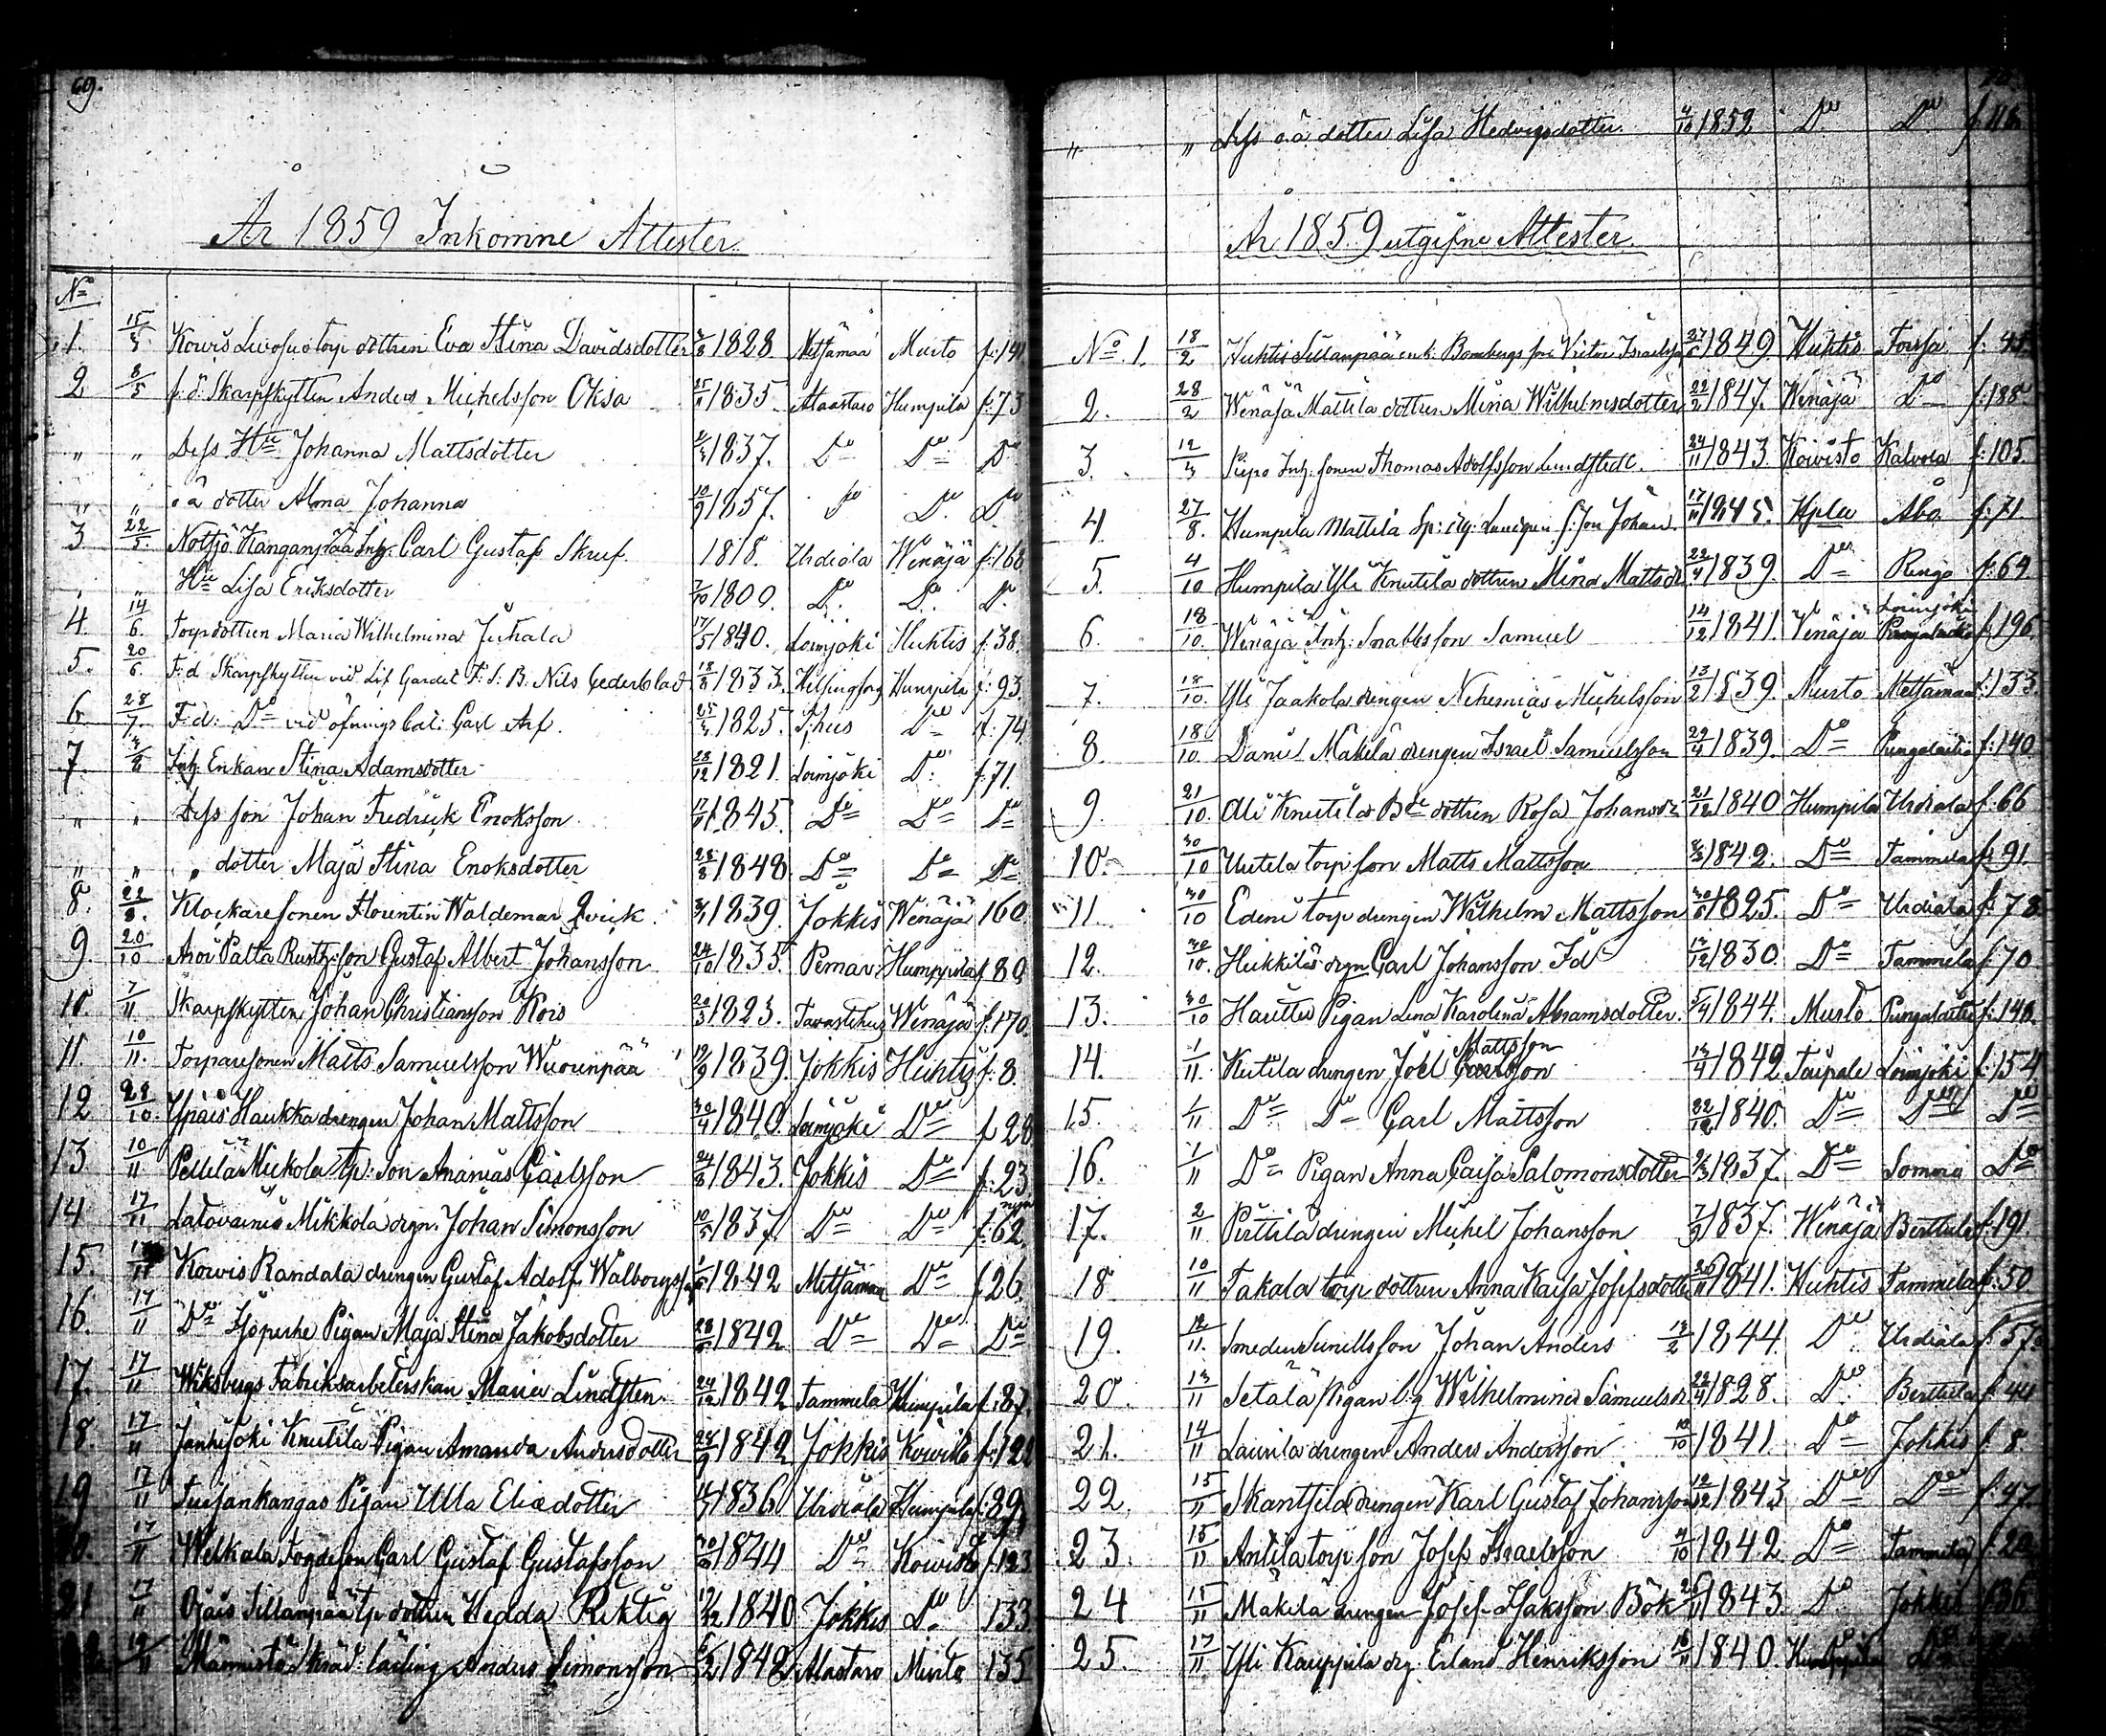 69.
År 1859 Inkomne Attester.
No
1. 15/3 Kowis torp dottren Eva Stina Davidsdotter 1828 Metsämaa Murto f. 141
2 8/5 f. d. Skarpskytten Anders Michelsson Oksa 1835 Alastaro Humpila f: 73
" " Dess Hu Johanna Mattsdotter 1837. Do Do Do
" " o ä dotter Alma Johanna 10/9 1857. Do Do Do
3 22/5. Notsjö Kanganpää Inh. Carl Gustaf Skruf. 1818. Urdiala Wenäjä f: 168
" " Hu Lisa Eriksdotter 7/10 1800. Do Do Do
4. 14/6. Torpdottren Maria Wilhelmina Juhala 17/5 1840. Loimjoki Huhtis f. 38
5. 20/6. F. d Skarpskytten vid Lif Gardet F. S. B. Nils Cederblad 1833. Helsingfors Humpila f: 93.
6. 28/7. F. d: Do vid öfnings bat: Carl Arf. 1825. Do f: 74
7. Inh. Enkan Stina Adamsdotter 1821. Loimjoki Do f. 71.
" " Dess son Johan Fredrick Enoksson 1845. Do Do Do
" " " dotter Maja Stina Enoksdotter 1848 Do Do Do
8. 22/8. Klockaresonen Florentin Waldemar Qvick. 1839. Jokkis Wenäjä 160
9. 20/10 Palta Rusth: son Gustaf Albert Johansson 24/10 1835. Pemar Humppila f. 80
10. 7/11 Skarpskytten Johan Christiansson Rois 1823. Tavastehus Wenäjä f. 170.
11. 10/11. Torparesonen Matts Samuelsson Wuorenpää 1839. Jokkis Huhtis f. 8.
12 28/10. Ypäis Haukka drengen Johan Mattsson 1840. Loimjoki Do f 28
13 10/11 Pellilä Mickola tp: son Ananias Carlsson 1843. Jokkis Do f: 23
14 17/11 Latovainio Mikkola drgn. Johan Simonsson 1837. Do Do f: 62.
15. 17/11 Kowis Randala drengen Gustaf Adolf Walborgss. 1842 Metsämaa Do f 26.
16. 17/11 Do Pigan Maja Stina Jakobsdotter 1842 Do Do Do
17. 17/11 Wiksbergs Fabriksarbeterskan Maria Lindsten. 24/12 1842 Tammela Humpila f: 87.
18. 17/11 Jänhijoki Knutila Pigan Amanda Andersdotter 1842 Jokkis Kowisto f: 121
19 17/11 Pigan Ulla Eliædotter 1836 Urdiala Humpila f: 89
20. 17/11 Welkala Fogdeson Carl Gustaf Gustafsson 1844 Do Kowisto f: 123
21 17/11 Ojäis Sillanpää tp dottren Hedda Riktig 1840 Jokkis Do 133
Männistö Skräd: lärling Anders Simonsson 1842 Alastaro Murto 135
" " Dess o. ä dotter Lisa Hedvigsdotter. 1852 Do Do f. 118.
År 1859 utgifne Attester.
No. 1. 18/2 Huhtis Sillanpää enk. Bombergs son Victor Israelsson 1849 Huhtis Forssa f: 45.
2. 28/2 Wenäjä Mattila dottren Mina Wilhelmsdotter 1847. Wenäjä Do f: 188
3. 12/3 Inh. sonen Thomas Adolfsson Lundstedt. 24/11 1843. Koivisto Kalvola f: 105.
4. 27/8. Humpila Mattila Johan 1845. Hpla Åbo f: 71
5. 4/10 Humpila Yli Knutila dottren Mina Mattsdr. 1839. Do Ringo f: 64
6. 18/10. Wenäjä Inh. Snabbsson Samuel 14/12 1841. Venäjä Loimjoki f. 196.
7. 18/10. Yli Jaakola drengen Nehemias Michelsson 13/2 1839. Murto Metsämaa f: 133.
8 18/10. Mäkilä drengen Israel Samuelsson 1839. Do Pungalaitio f: 140
9. 21/10. Ali Knutila dottren Rosa Johansdr 21/12 1840 Humpila Urdiala f: 66
10. 30/10 Uutela torp son Matts Mattsson 1842. Do Tammela f: 91.
11. 30/10 Edeni torp drengen Wilhelm Mattsson 1825. Do Urdiala f: 78
12. 30/10. Heikkilä drgn Carl Johansson 1830. Do Tammela f: 70
13. 30/10 Pigan Lena Karolina Abramsdotter. 5/4 1844. Murto Pungalaitio f: 140.
14. 1/11. Kutila drengen Joel Mattsson 1842 Taipale Loimjoki f: 154
15. 1/11 Do Do Carl Mattsson 1840. Do Do Do
16. 1/11 Do Pigan Anna Caisa Salomonsdotter 1837. Do Somero Do
17. 2/11 Perttilä drengen Michel Johansson 1837. Wenäjä Berttula f. 191
18 10/11 Takala torp dottren Anna Kaisa Josefsdotter 1841. Huhtis Tammela f: 50
19. 12/11. Smeden Sunells son Johan Anders 1844. Do Urdiala f. 57.
20. 13/11 Setälä Pigan Wilhelmina Samuelsdr 1828. Do Berttula f. 44
21. 14/11 Laurila drengen Anders Andersson 1841. Do Jokkis f. 8.
22. 15/11 drengen Karl Gustaf Johansson 1843 Do Do f: 47.
23. 15/11 Antila torp son Josef Israelsson 1842 Do Tammela f. 20
24 15/11 Mäkilä drengen Josef Isaksson Bök 1843. Do Jokkis
25. 17/11 Yli Kauppila drg. Erland Henriksson 1840. Humppila Do